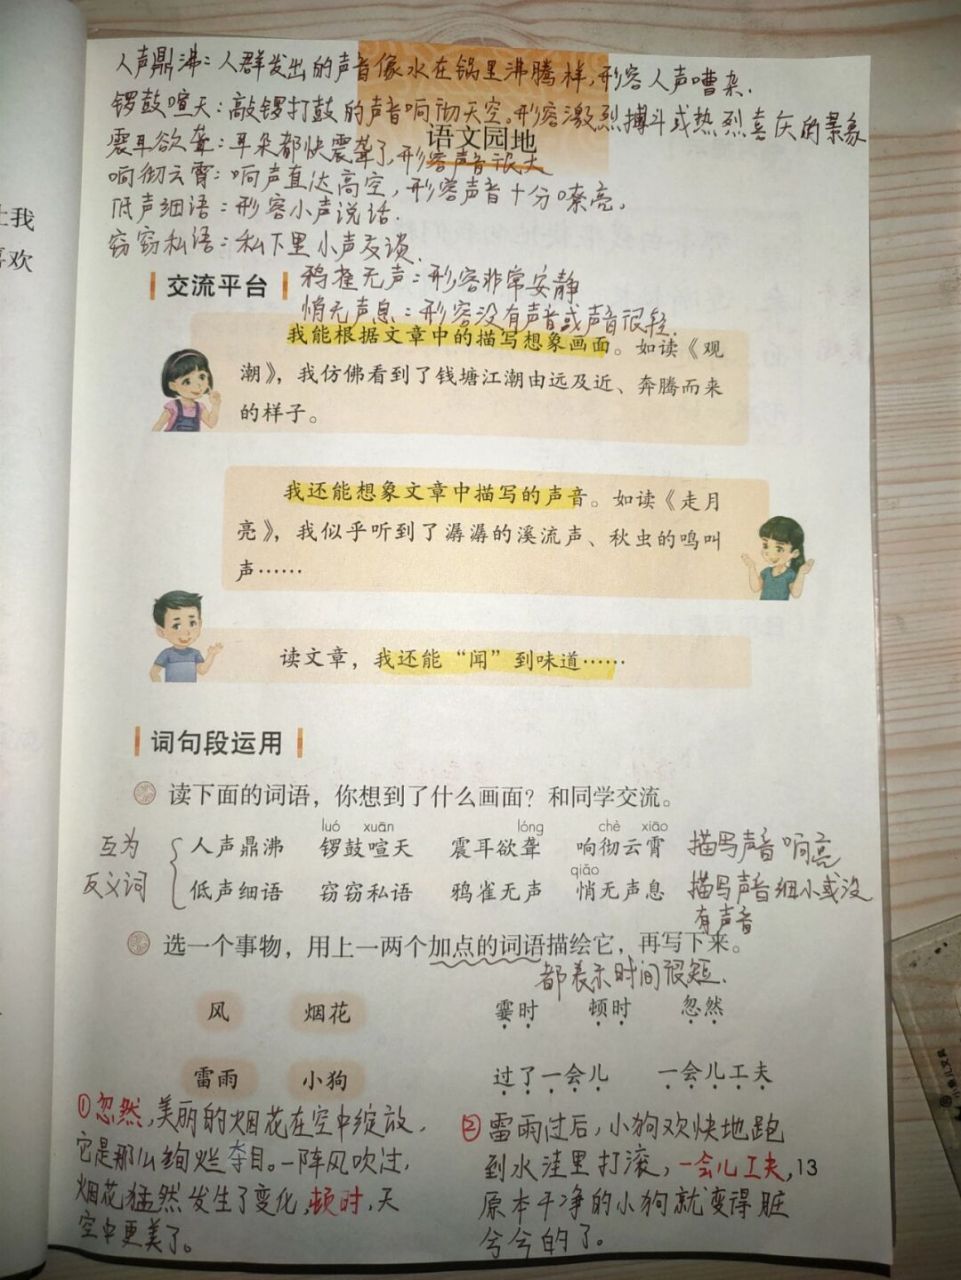 人声鼎沸：人群发出的声音像水在锅里沸腾样，形容人声嘈杂．
锣鼓喧天：敲锣打鼓的声音响彻天空。形容激烈搏斗或热烈喜庆的景象
语文园地
震耳欲聋：耳朵都快震聋了，形容声音很大
响彻云霄：响声直达高空，形容声音十分嘹亮，
低声细语：形容小声说话．
窃窃私语：私下里小声交谈．
交流平台
鸦雀无声：形容非常安静
悄无声息：形容没有声音或声音很轻．
我能根据文章中的描写想象画面。如读《观
潮》，我仿佛看到了钱塘江潮由远及近、奔腾而来
的样子。
我还能想象文章中描写的声音。如读《走月
亮》，我似乎听到了潺潺的溪流声、秋虫的鸣叫
声……
读文章，我还能“闻”到味道……
词句段运用
读下面的词语，你想到了什么画面？和同学交流。
luó xuān lóng chè xiāo
互为
人声鼎沸 锣鼓喧天 震耳欲聋 响彻云霄 描写声音响亮
qiǎo
反义词
低声细语 窃窃私语 鸦雀无声 悄无声息 描写声音细小或没
有声音
选一个事物，用上一两个加点的词语描绘它，再写下来。
都表示时间很短．
风 烟花 霎时 顿时 忽然
雷雨 小狗 过了一会儿 一会儿工夫
①忽然，美丽的烟花在空中绽放，
它是那么绚烂夺目。一阵风吹过，
烟花猛然发生了变化，顿时，天
空中更美了。
②雷雨过后，小狗欢快地跑
到水洼里打滚，一会儿工夫，
原本干净的小狗就变得脏
兮兮的了。
13
上我
喜欢